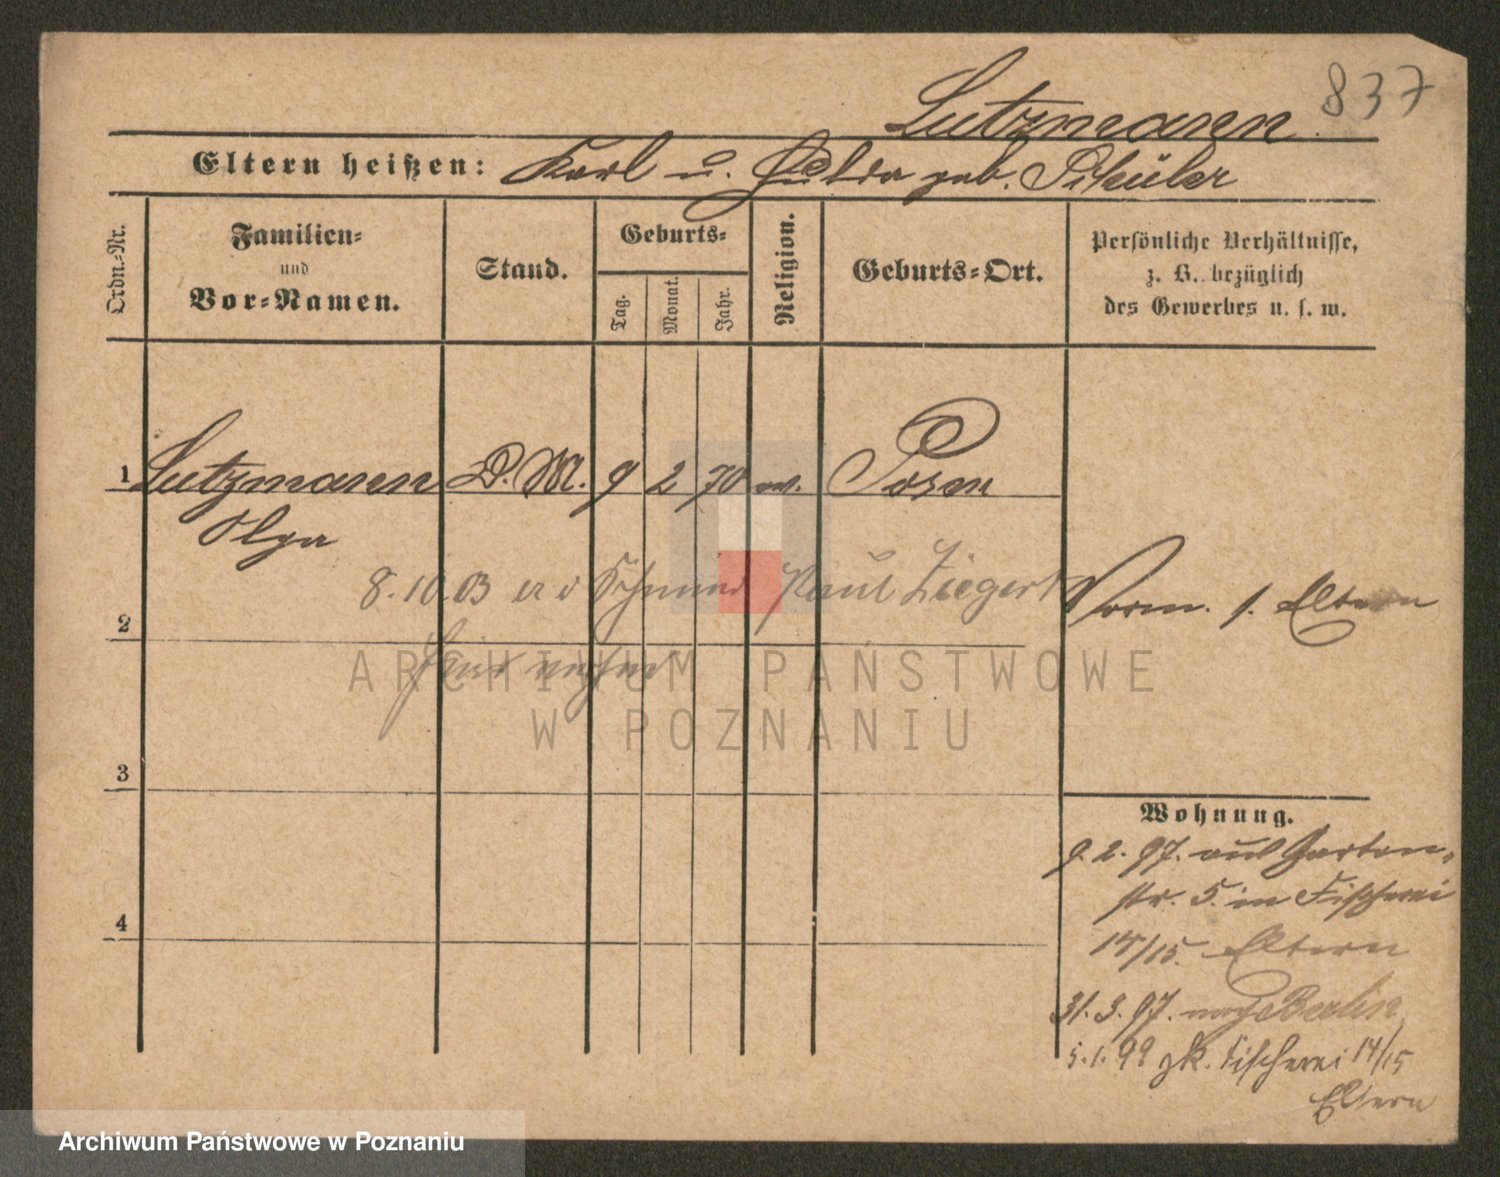 837
Lutzmann
Eltern heißen: Karl u. Hulda geb. Schüler
Ordn.-Nr.
Familien- und Vor-Namen.
Stand.
Geburts-
Tag.
Monat.
Jahr.
Religion.
Geburts-Ort.
Persönliche Verhältnisse,
z. B. bezüglich
des Gewerbes u. s. w.
1 Lutzmann D. M. 9 2 70 ev. Posen
Olga
8.10.03 Paul Ziegert
Vorm. s. Eltern
2
3
4
Wohnung.
9.2.97. aus Garten-
str. 5. in Fischerei
14/15. Eltern
31.3.97. nach Berlin
5.1.99 zk. Fischerei 14/15
Eltern
ARCHIWUM PAŃSTWOWE
W POZNANIU
Archiwum Państwowe w Poznaniu